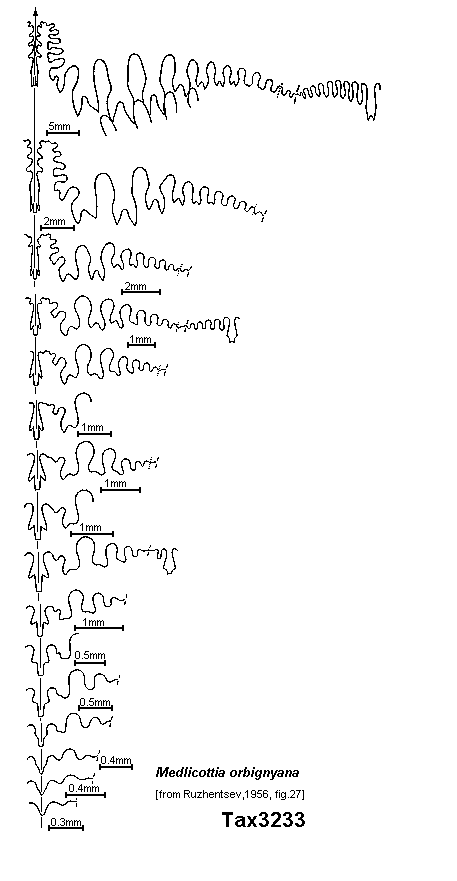 5mm
2mm
2mm
1mm
1mm
1mm
1mm
1mm
0.5mm
0.5mm
0.4mm
Medlicottia orbignyana
0.4mm
[from Ruzhentsev,1956, fig.27]
Tax3233
0.3mm